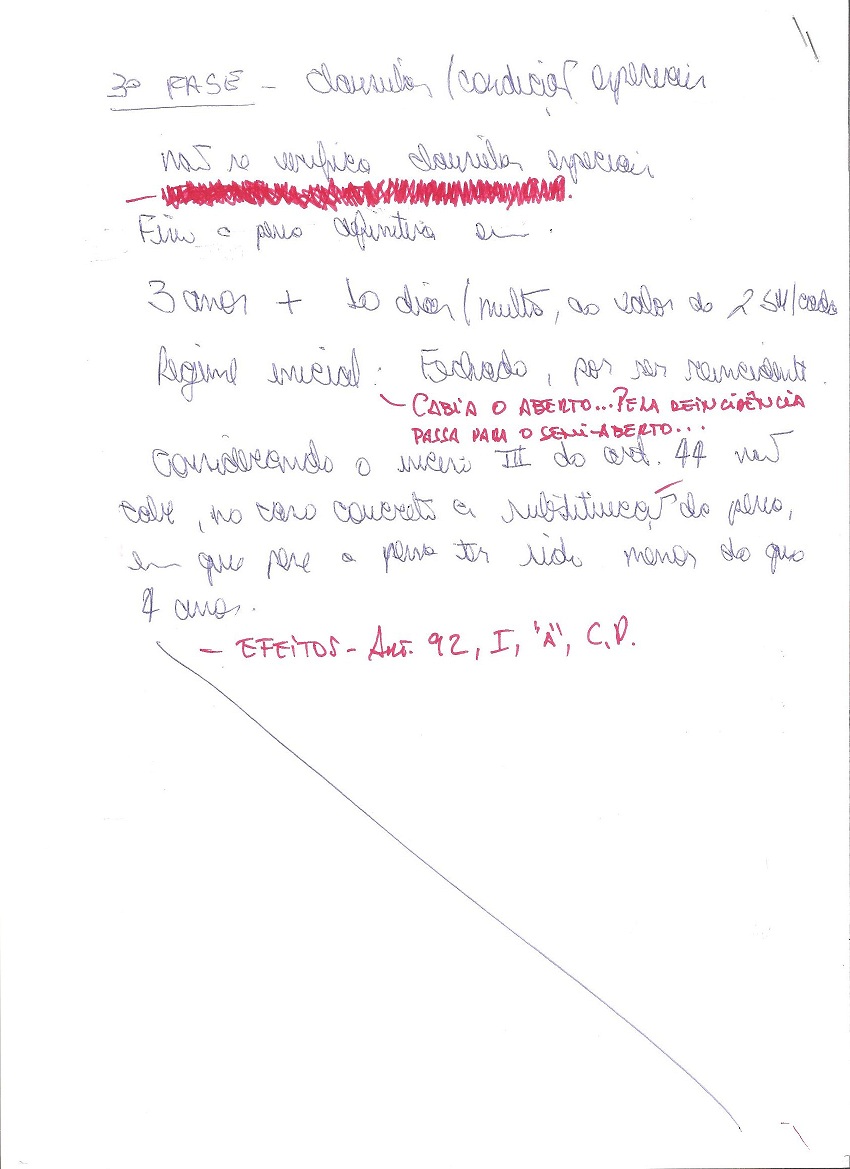 3ª FASE - clausulas/condições especiais
não se verifica clausulas especiais
Fixo a pena definitiva em .
3 anos + 10 dias/multa, ao valor de 2 SM/cada
Regime inicial: Fechado, por ser reincidente.
CABIA O ABERTO...PELA REINCIDÊNCIA
PASSA PARA O SEMI-ABERTO...
Considerando o inciso III do art. 44 não
cabe, no caso concreto a substituição da pena,
em que pese a pena ter sido menor do que
4 anos.
- EFEITOS - ART. 92, I, "A", C.P.